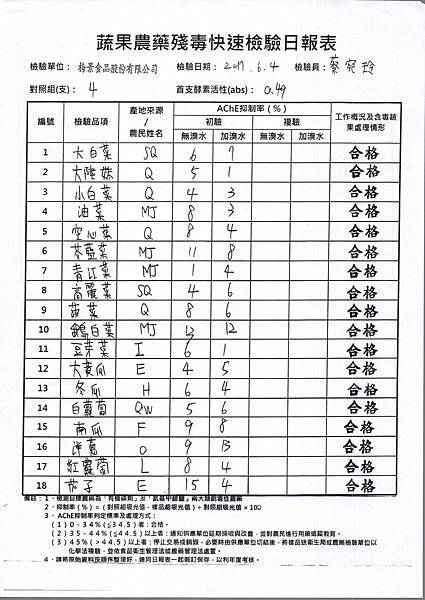 蔬果農藥殘毒快速檢驗日報表
檢驗單位： 梅景食品股份有限公司 檢驗日期： 2017.6.4 檢驗員： 蔡宛玲
對照組(支)： 4 首支酵素活性(abs)： 0.49
編號 檢驗品項 產地來源/農民姓名 AChE抑制率(％) 工作概況及含毒蔬果處理情形
初驗 複驗
無溴水 加溴水 無溴水 加溴水
1 大白菜 SQ 6 7 合格
2 大陸妹 Q 5 1 合格
3 小白菜 Q 4 3 合格
4 油菜 MJ 8 3 合格
5 空心菜 Q 8 4 合格
6 芥藍菜 MJ 11 8 合格
7 青江菜 MJ 1 4 合格
8 高麗菜 SQ 4 6 合格
9 菠菜 Q 8 6 合格
10 鵝白菜 MJ 13 12 合格
11 豆芽菜 I 6 1 合格
12 大黃瓜 E 4 5 合格
13 冬瓜 H 6 4 合格
14 白蘿蔔 QW 5 6 合格
15 南瓜 F 9 8 合格
16 洋蔥 O 9 13 合格
17 紅蘿蔔 L 8 4 合格
18 茄子 E 15 4 合格
備註：1、檢測目標農藥為「有機磷劑」及「氨基甲酸鹽」兩大類劇毒性農藥
2、抑制率(％)＝(對照組吸光值－樣品組吸光值)÷對照組吸光值×100
3、AChE抑制率判定標準及處理方式：
(1)0－34％(≦34.5)者：合格。
(2)35－44％(≦44.5)以上者：通知供應單位延期採收與改善，並對農民進行用藥追蹤教育。
(3)45％(＞44.5)以上者：停止交易或銷毀，必要時由供應單位切結後，將樣品送衛生局或農藥檢驗單位以
化學法複驗，並依食品衛生管理法或農藥管理法處置。
4、請將原始資料按順序整理好，連同日報表一起裝訂保存，以利年度考核。